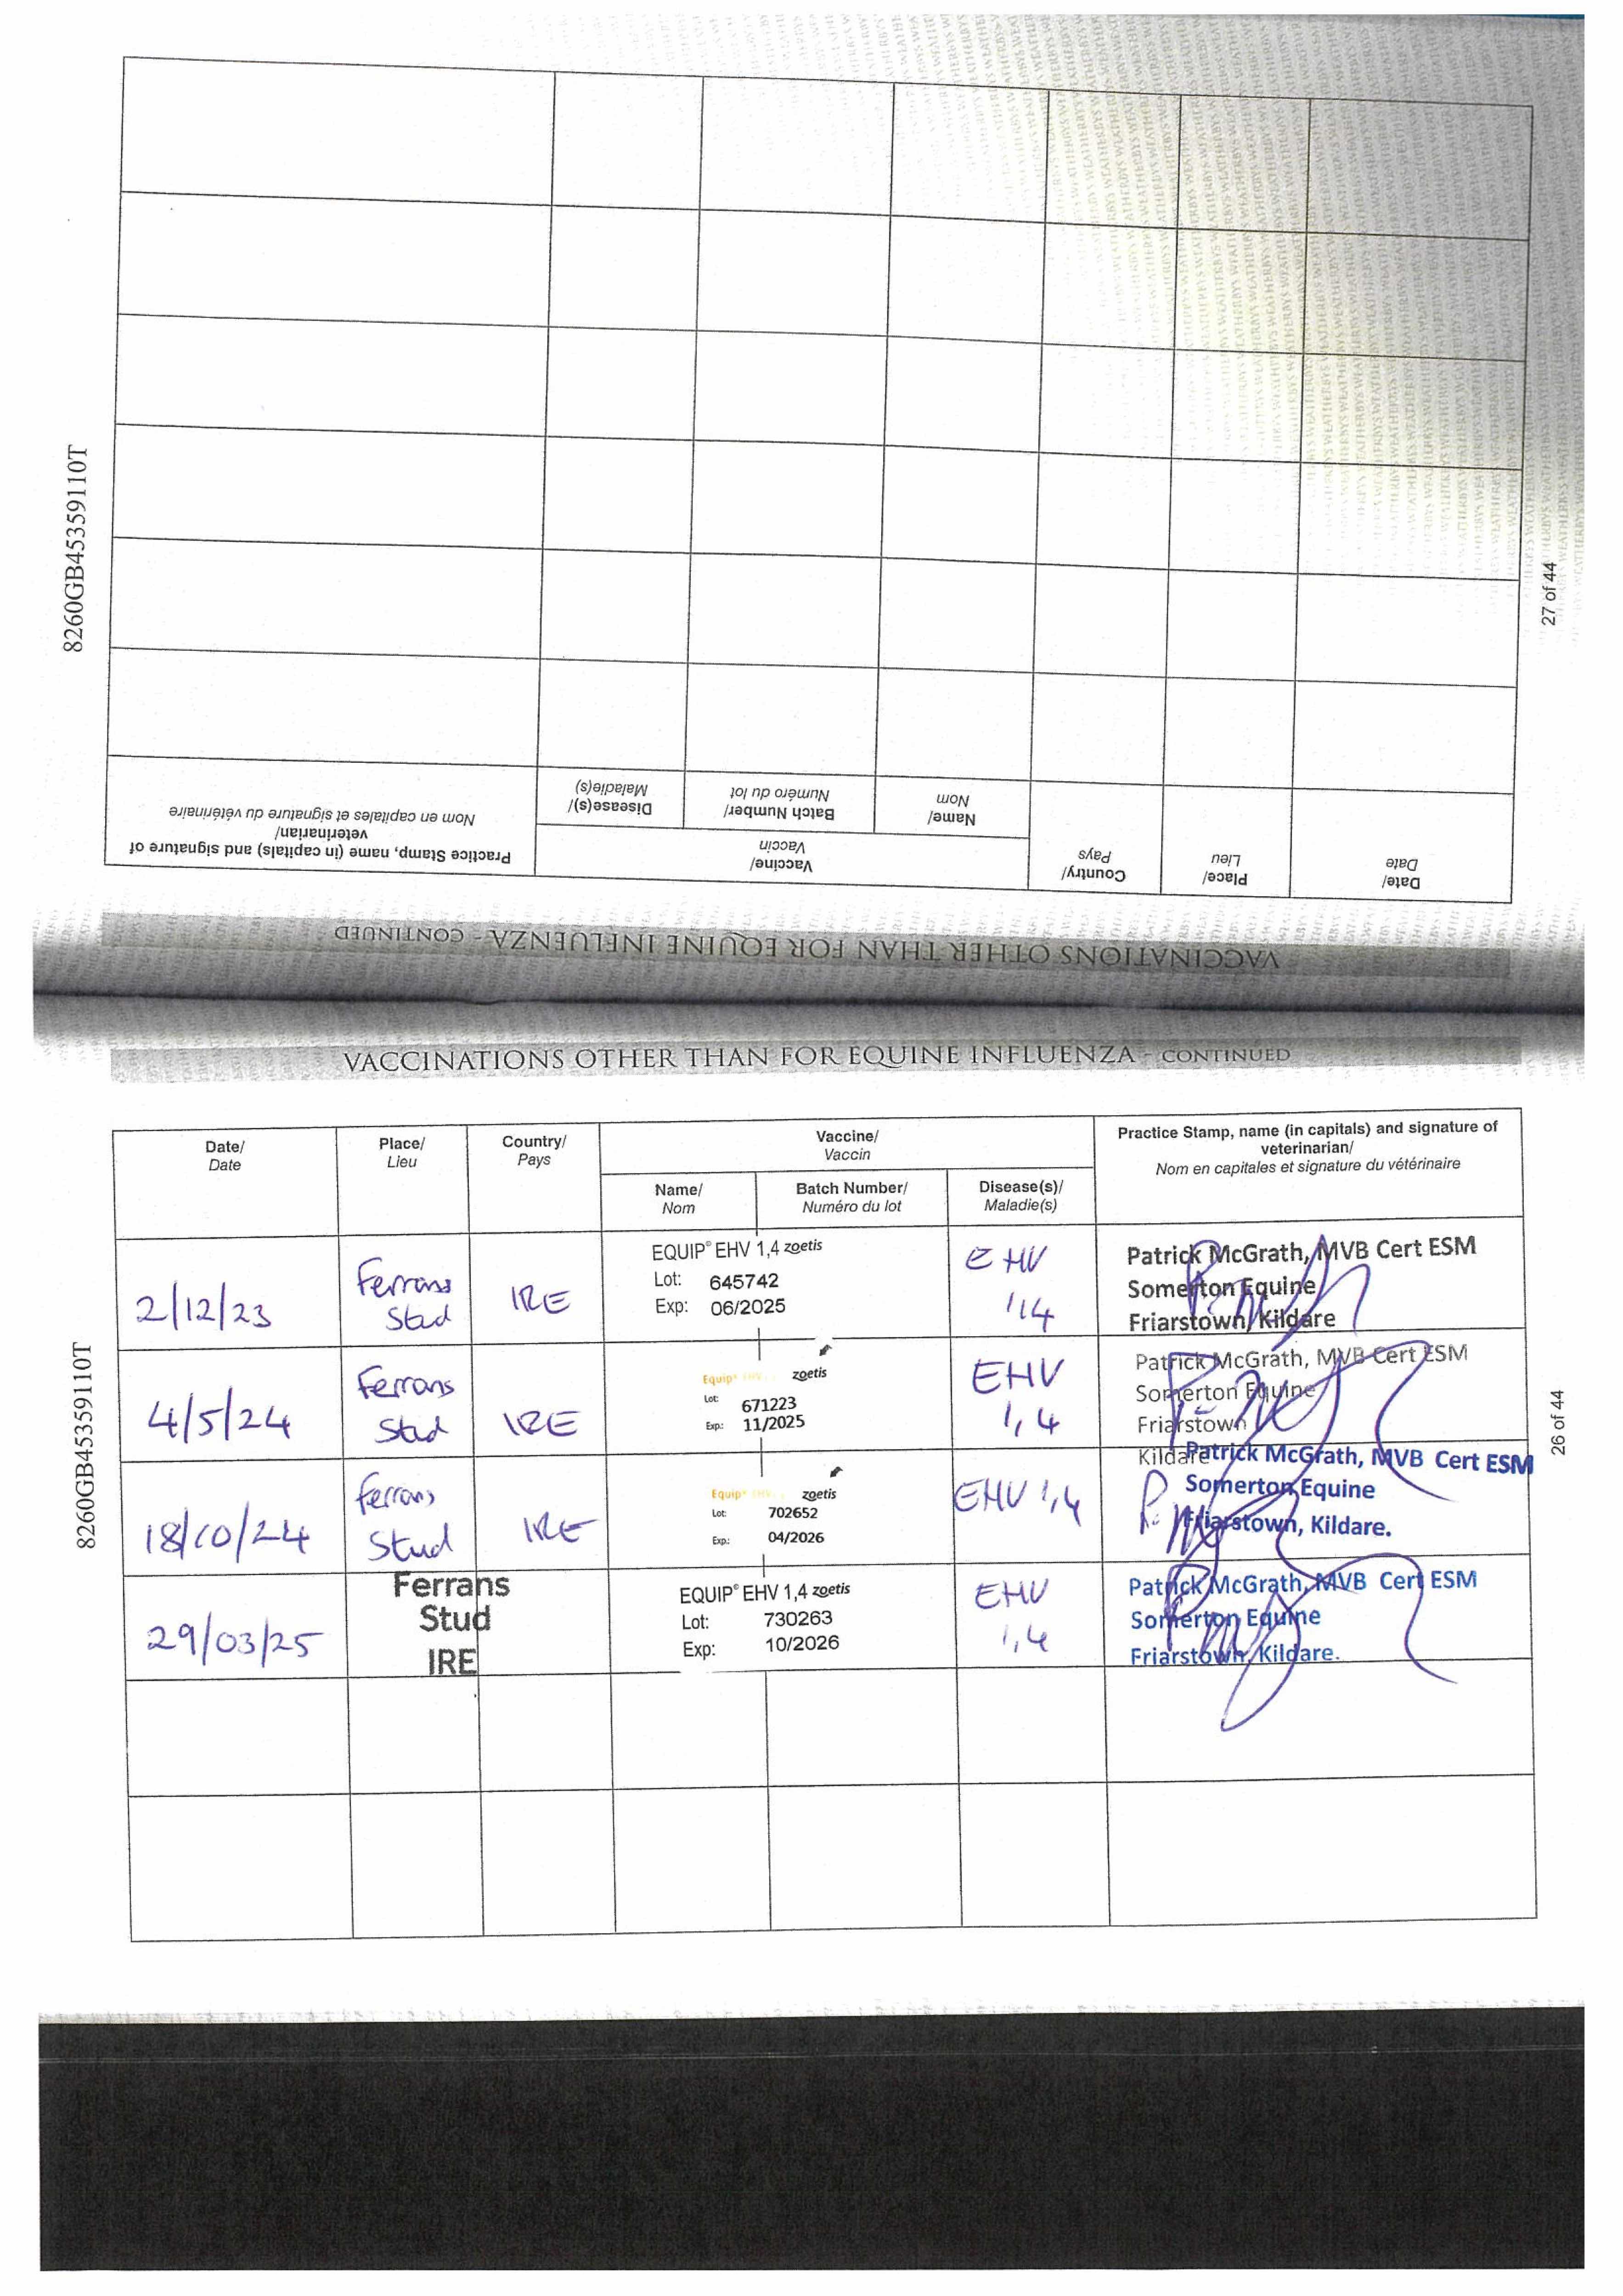 8260GB45359110T
27 of 44
VACCINATIONS OTHER THAN FOR EQUINE INFLUENZA - CONTINUED
Date/
Date
Place/
Lieu
Country/
Pays
Vaccine/
Vaccin
Name/
Nom
Batch Number/
Numéro du lot
Disease(s)/
Maladie(s)
Practice Stamp, name (in capitals) and signature of
veterinarian/
Nom en capitales et signature du vétérinaire
VACCINATIONS OTHER THAN FOR EQUINE INFLUENZA - CONTINUED
8260GB45359110T
26 of 44
Date/
Date
Place/
Lieu
Country/
Pays
Vaccine/
Vaccin
Name/
Nom
Batch Number/
Numéro du lot
Disease(s)/
Maladie(s)
Practice Stamp, name (in capitals) and signature of
veterinarian/
Nom en capitales et signature du vétérinaire
2/12/23
Ferrans
Stud
IRE
EQUIP® EHV 1,4 zoetis
Lot: 645742
Exp: 06/2025
EHV
1,4
Patrick McGrath, MVB Cert ESM
Somerton Equine
Friarstown, Kildare
4/5/24
Ferrans
Stud
IRE
Equip® EHV zoetis
Lot: 671223
Exp.: 11/2025
EHV
1,4
Patrick McGrath, MVB Cert ESM
Somerton Equine
Friarstown
Kildare
18/10/24
Ferrans
Stud
IRE
Equip® EHV zoetis
Lot: 702652
Exp.: 04/2026
EHV 1,4
Patrick McGrath, MVB Cert ESM
Somerton Equine
Friarstown, Kildare.
29/03/25
Ferrans
Stud
IRE
EQUIP® EHV 1,4 zoetis
Lot: 730263
Exp: 10/2026
EHV
1,4
Patrick McGrath, MVB Cert ESM
Somerton Equine
Friarstown, Kildare.